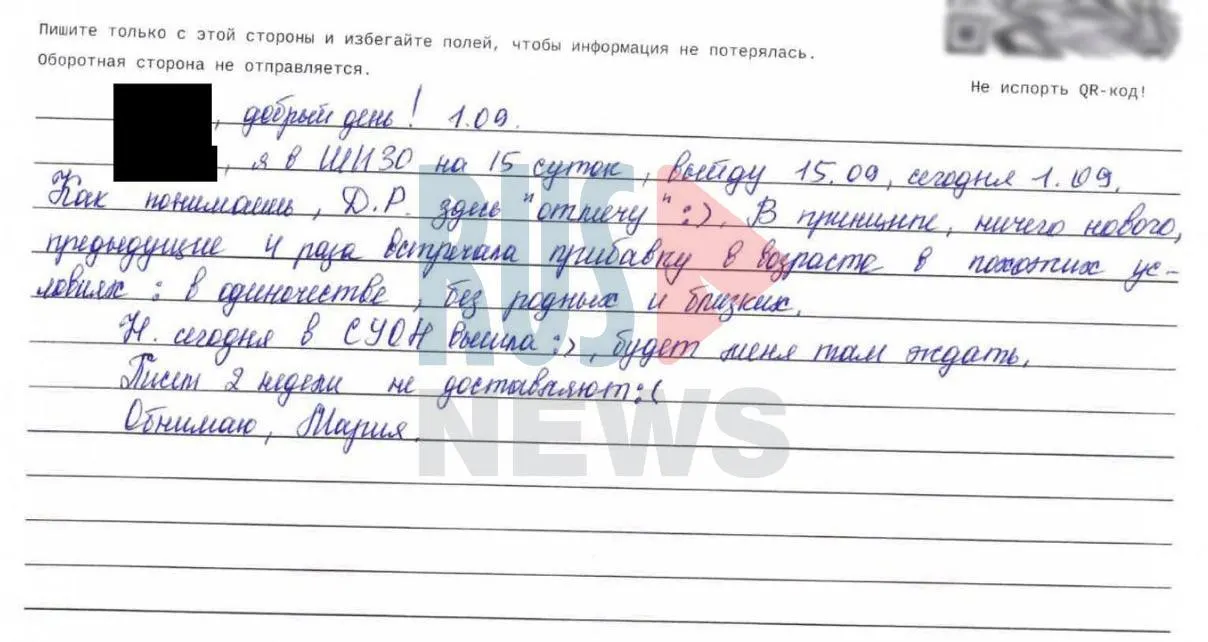 Пишите только с этой стороны и избегайте полей, чтобы информация не потерялась.
Оборотная сторона не отправляется.
Не испорть QR-код!
, добрый день! 1.09.
, я в ШИЗО на 15 суток, выйду 15.09, сегодня 1.09.
Как понимаешь, Д.Р. здесь "отмечу" :), В принципе, ничего нового,
предыдущие 4 раза встречала прибавку в возрасте в похожих ус-
ловиях: в одиночестве, без родных и близких.
Н. сегодня в СУОН вышла :), будет меня там ждать.
Писем 2 недели не доставляют :(
Обнимаю, Мария.
RUS
NEWS